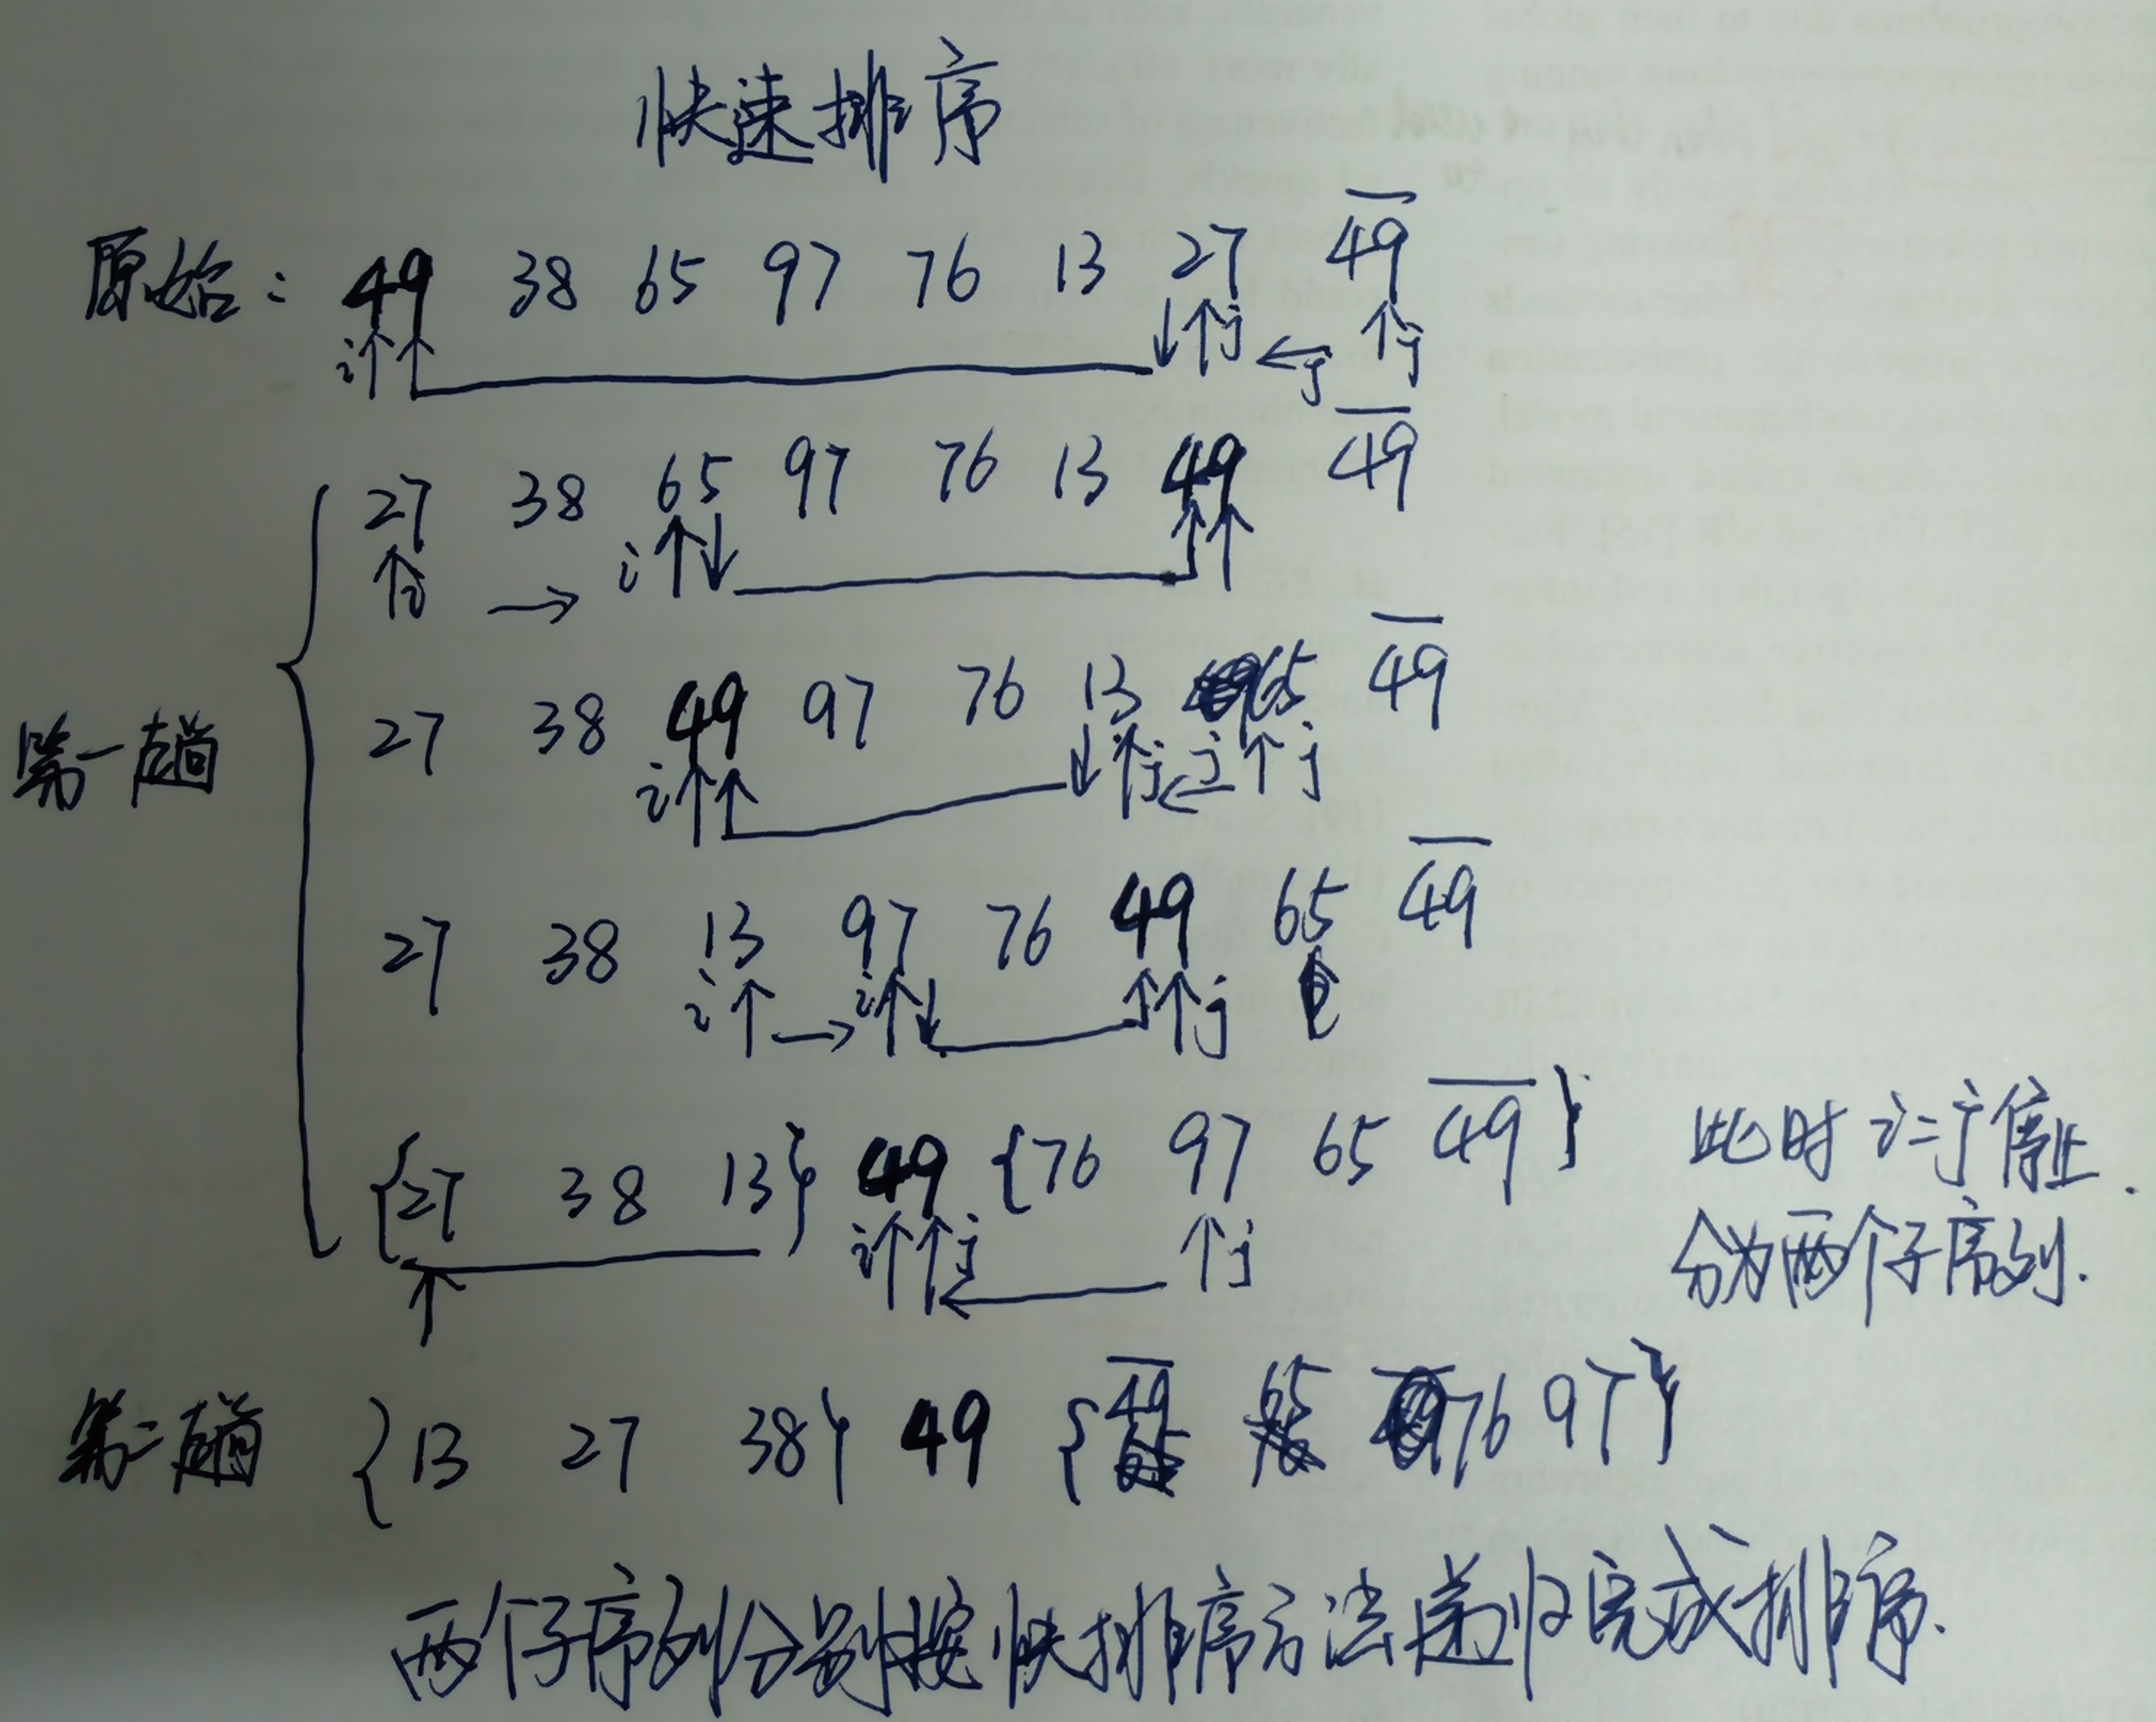 快速排序
原始: 49 38 65 97 76 13 27 49
i j j j
27 38 65 97 76 13 49 49
i i
第一趟
27 38 49 97 76 13 65 49
i j j j
27 38 13 97 76 49 65 49
i i j
{27 38 13} 49 {76 97 65 49}
i j j
此时 i=j 停止.
分为两个子序列.
第二趟 {13 27 38} 49 {49 65 76 97}
两个子序列分别按快排序方法递归完成排序.